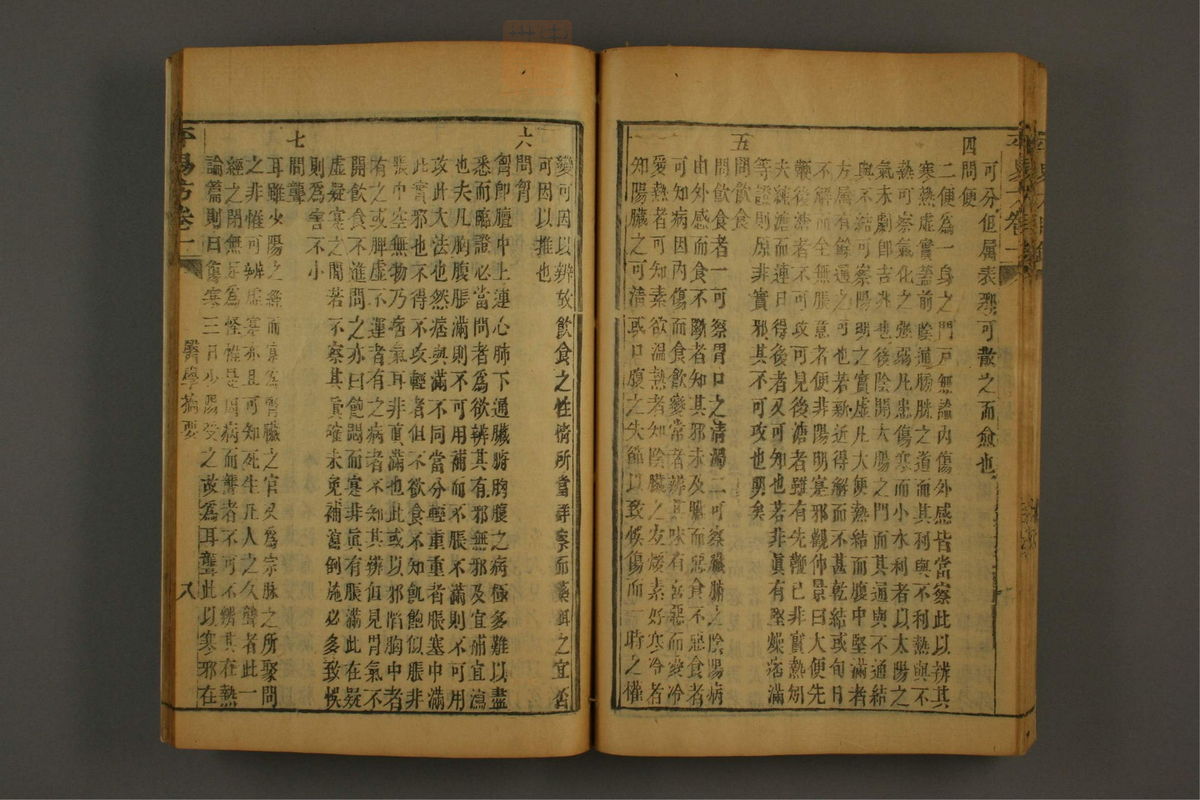 可分但屬表邪可散之而愈也
四問便
二便為一身之門戶無論內傷外感皆當察此以辨其
寒熱虛實蓋前陰通膀胱之道而其利與不利熱與不
熱可察氣化之強弱凡患傷寒而小水利者以太陽之
氣未劇即吉兆也後陰開大腸之門而其通與不通結
與不結可察陽明之實虛凡大便熱結而腹中堅滿者
方屬有餘通之可也若新近得解而不甚乾結或旬日
不解而全無脹意者便非陽明實邪觀仲景曰大便先
鞕後溏者不可攻可見後溏者雖有先鞕已非實熱矧
夫純溏而連日得後者又可知也若非真有堅燥痞滿
等證則原非實邪其不可攻也明矣
五問飲食
問飲食者一可察胃口之清濁二可察臟腑之陰陽病
由外感而食不斷者知其邪未及臟而惡食不惡食者
可知病因內傷而食飲變常者辨其味有喜惡而愛冷
愛熱者可知素欲溫熱者知陰臟之宜煖素好寒冷者
知陽臟之可清或口腹之失節以致候傷而一時之權
變可因以辨故飲食之性情所當詳察而藥餌之宜否
可因以推也
六問胷
胷即膻中上連心肺下通臟腑胸腹之病極多難以盡
悉而臨證必當問者為欲辨其有邪無邪及宜補宜瀉
也夫凡胸腹脹滿則不可用補而不脹不滿則不可用
攻此大法也然痞與滿不同當分輕重重者脹塞中滿
此實邪也不得不攻輕者但不欲食不知飢飽似脹非
脹中空無物乃痞氣耳非真滿也此或以邪陷胸中者
有之或脾虛不運者有之病者不知其辨但見胃氣不
開飲食不進問之亦曰飽悶而寒非真有脹滿此在疑
虛疑實之間若不察其真確未免補瀉倒施必多致悮
則為害不小
七問聾
耳雖少陽之經而實為腎臟之官又為宗脉之所聚問
之非惟可辨虛實亦且可知死生凡人之久聾者此一
經之閉無足為怪惟是因病而聾者不可不辨其在熱
論篇則曰傷寒三日少陽受之故為耳聾此以寒邪在
平易方卷一
醫學摘要
八